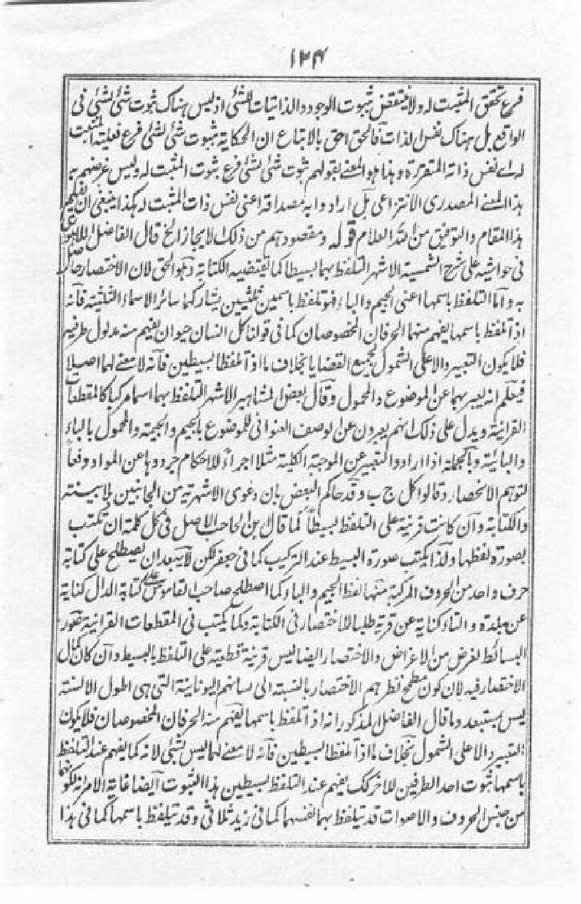 ۱۲۴
فرع تحقق المثبت له ولا ينتقض بثبوت الوجود والذاتيات للشئ اذ ليس هناك ثبوت شئ لشئ فى
الواقع بل هناك نفس الذات فالحق احق بالاتباع ان الحكاية بثبوت شئ لشئ فرع فعلية المثبت
له اے نفس ذاته المتقررة وهذا هو المعنے بقولهم ثبوت شئ لشئ فرع ثبوت المثبت له وليس غرضهم به
هذا المعنے المصدرى الانتزاعى بل ارادوا به مصداقه اعنى نفس ذات المثبت له هكذا ينبغى ان يفهم
هذا المقام والتوفيق من الله العلام قوله ومقصودهم من ذلك الايجاز الخ قال الفاضل اللاهورى
فى حواشيه على شرح الشمسية الاشهر التلفظ بهما بسيطا كما تقتضيه الكتابة وهو الحق لان الاختصار حاصل
به واما التلفظ باسمها اعنى الجيم والباء فهو تلفظ باسمين ثلثيين يشاركهما سائر الاسماء الثلثية فانه
اذ تلفظ باسمها يفهم منهما الحرفان المخصوصان كما فى قولنا كل انسان حيوان يفهم منه مدلول طرفيه
فلا يكون التعبير دالا على الشمول لجميع القضايا بخلاف ما اذا تلفظا بسيطين فانه لا معنے لهما اصلا
فيعلم انه يعبر بهما عن الموضوع والمحمول وقال بعض المشاهير الاشهر التلفظ بهما اسما مركبا كالمقطعات
القرآنية ويدل على ذلك انهم يعبرون عن الوصف العنوانى للموضوع بالجيم والجيمية والمحمول بالباء
والبائية وبالجملة اذا ارادوا التعبير عن الموجبة الكلية مثلا اجراءً للاحكام جردوها عن المواد دفعاً
لتوهم الانحصار وقالوا كل ج ب وقد حاكم البعض بان دعوى الاشهرية من الجانبين بلا بينة
والكتابة وان كانت قرينة على التلفظ بسيطاً كما قال ابن الحاجب الاصل فى كل كلمة ان تكتب
بصورة لفظها ولذا يكتب صورة البسيط عند التركيب كما فى جعفر لكن لا يبعد ان يصطلح على كتابة
حرف واحد من الحروف المركبة منها لفظ الجيم والباء كما اصطلح صاحب القاموس على كتابة الدال كناية
عن بلدة والتاء كناية عن قرية طلبا للاختصار فى الكتابة وكما يكتب فى المقطعات القرآنية صور
البسائط لغرض من الاغراض والاختصار ايضا ليس قرينة قطعية على التلفظ بالبسيط وان كان كمال
الاختصار فيه لان كون مطمح نظرهم الاختصار بالنسبة الى لسانهم اليونانية التى هى اطول الالسنة
ليس بمستبعد وما قال الفاضل المذكور انه اذ تلفظ باسمها يفهم منه الحرفان المخصوصان فلا يكون
التعبير دالا على الشمول بخلاف ما اذا تلفظا بسيطين فانه لا معنے لهما ليس بشئ لانه كما يفهم عند التلفظ
باسمها ثبوت احد الطرفين للآخر كك يفهم عند التلفظ بسيطين هذا الثبوت ايضا غاية الامر انه لكونهما
من جنس الحروف والاصوات قد يتلفظ بهما بانفسهما كما فى زيد ثلاثى وقد يتلفظ باسمها كما فى هذا